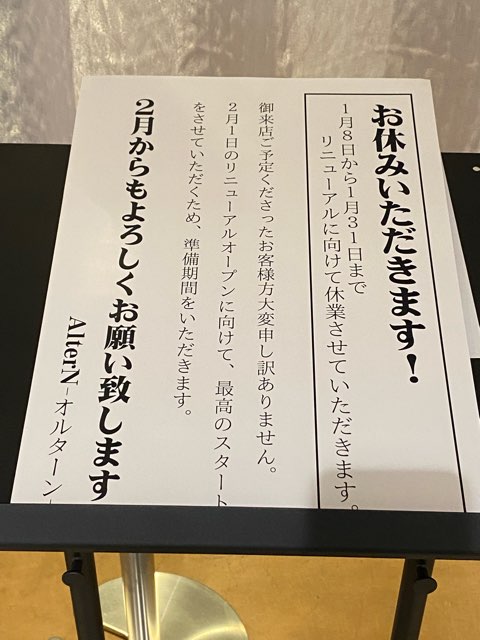 お休みいただきます！
1月8日から1月31日まで
リニューアルに向けて休業させていただきます。
御来店ご予定くださったお客様方大変申し訳ありません。
2月1日のリニューアルオープンに向けて、最高のスタート
をさせていただくため、準備期間をいただきます。
2月からもよろしくお願い致します
AlterN-オルターン-